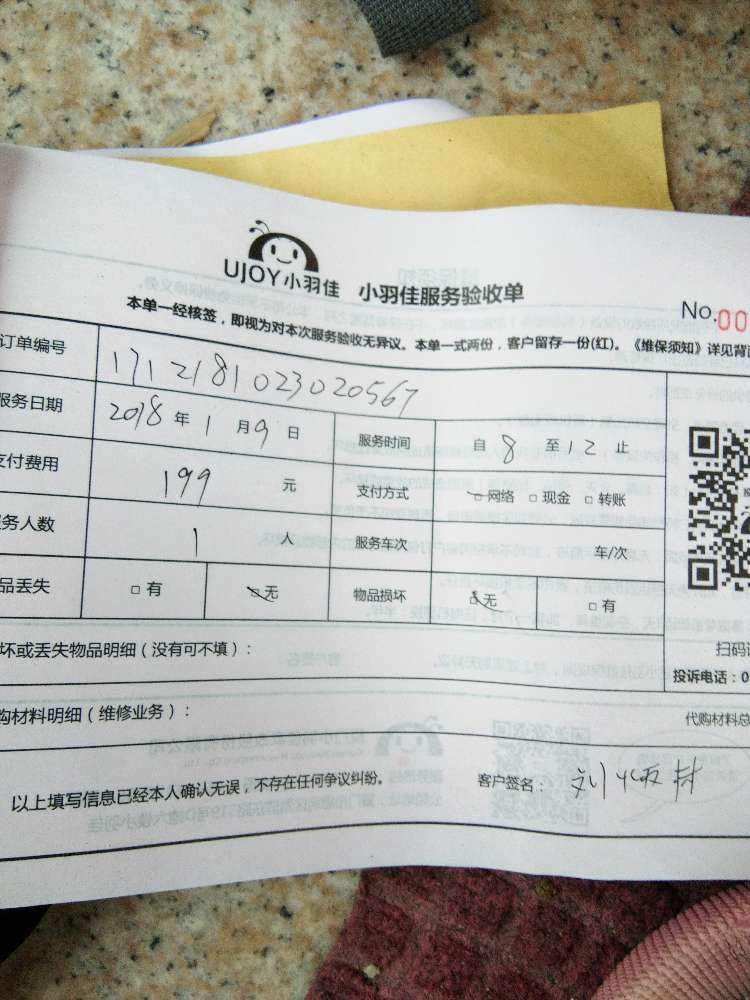 UJOY小羽佳 小羽佳服务验收单
No.00
本单一经核签，即视为对本次服务验收无异议。本单一式两份，客户留存一份(红)。《维保须知》详见背面
订单编号 1712181023020567
服务日期 2018 年 1 月 9 日 服务时间 自 8 至 12 止
支付费用 199 元 支付方式 □网络 □现金 □转账
服务人数 1 人 服务车次 车/次
品丢失 □有 □无 物品损坏 □无 □有
坏或丢失物品明细（没有可不填）： 扫码
投诉电话：0
购材料明细（维修业务）： 代购材料总
以上填写信息已经本人确认无误，不存在任何争议纠纷。 客户签名： 刘